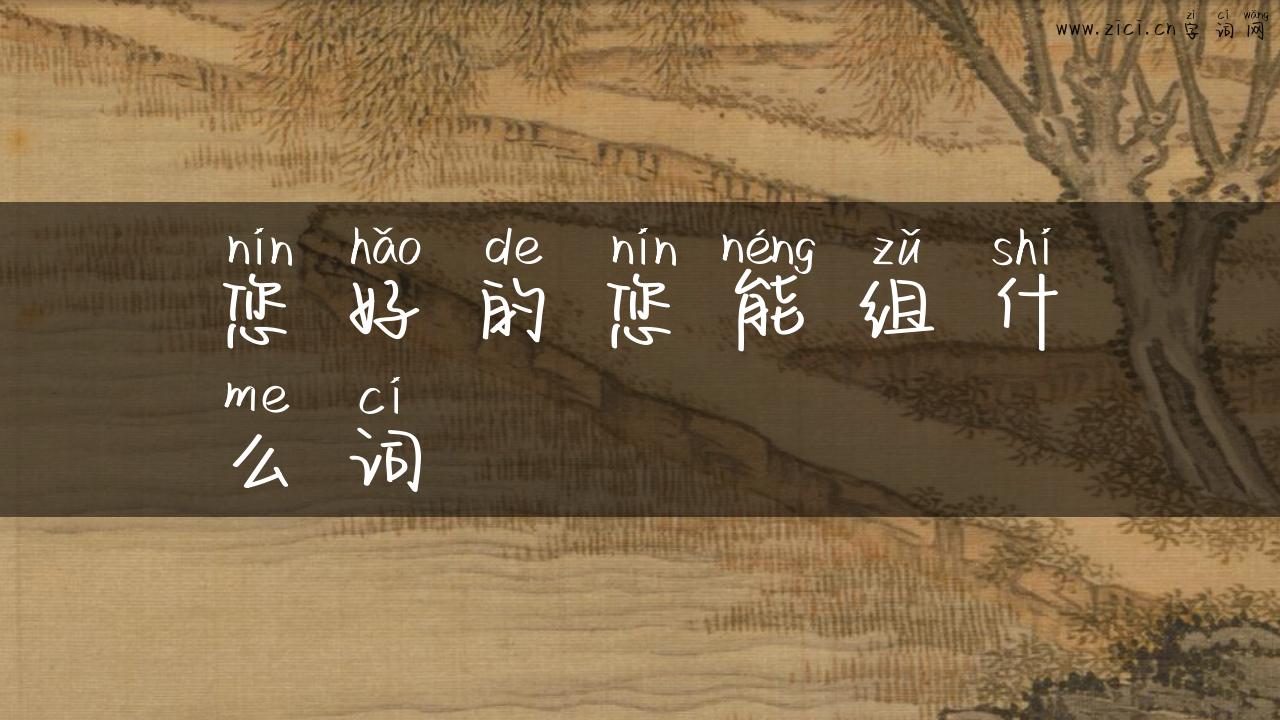 zì cí wǎng
www.zici.cn字词网
nín hǎo de nín néng zǔ shí
您好的您能组什
me cí
么词